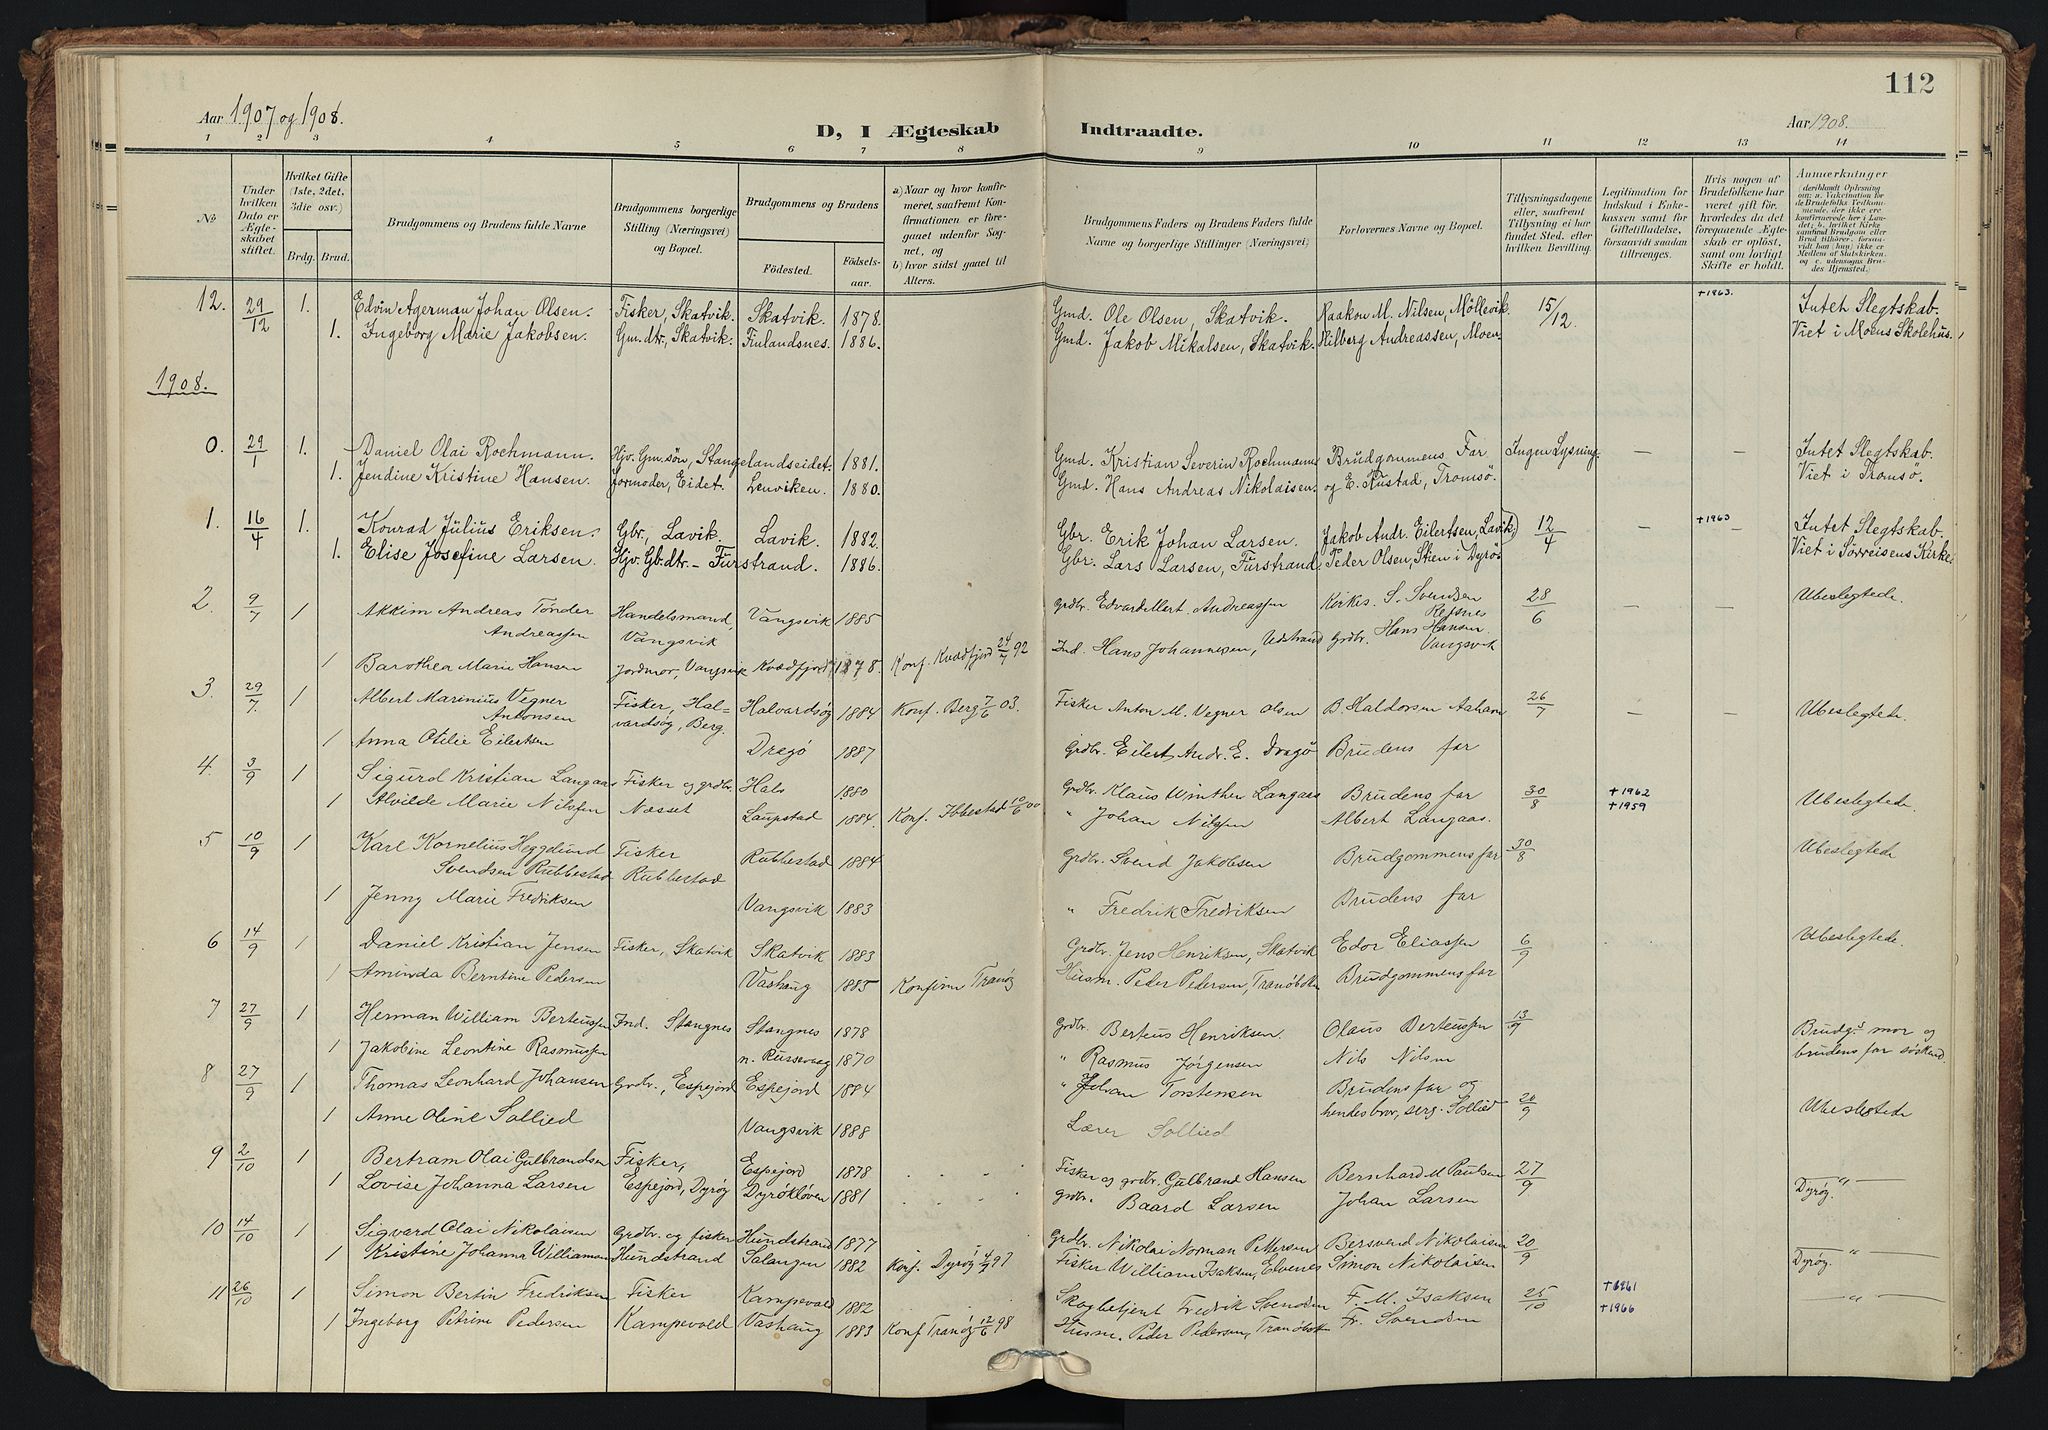 Aar 1907 og 1908.
D, I Ægteskab Indtraadte.
Aar 1908.
112
1 2 3 4 5 6 7 8 9 10 11 12 13 14
No
Under hvilken Dato er Ægteskabet stiftet.
Hvilket Gifte (1ste, 2det, 3die osv.)
Brdg. Brud.
Brudgommens og Brudens fulde Navne
Brudgommens borgerlige Stilling (Næringsvei) og Bopæl.
Brudgommens og Brudens
Fødested. Fødselsaar.
a) Naar og hvor konfirmeret, saafremt Konfirmationen er foregaaet udenfor Sognet, og
b) hvor sidst gaaet til Alters.
Brudgommens Faders og Brudens Faders fulde Navne og borgerlige Stillinger (Næringsvei)
Forlovernes Navne og Bopæl.
Tillysningsdagene eller, saafremt Tillysning ei har fundet Sted, efter hvilken Bevilling.
Legitimation for Indskud i Enkekassen samt for Giftetilladelse, forsaavidt saadan tiltrænges.
Hvis nogen af Brudefolkene har været gift før, hvorledes da det foregaaende Ægteskab er opløst, samt om lovligt Skifte er holdt.
Anmærkninger
12. 29/12 1. Edvin Agerman Johan Olsen. Fisker, Skatvik. Skatvik. 1878. Gmd. Ole Olsen, Skatvik. Haakon M. Nilsen, Møllevik. 15/12. +1963. Intet Slegtskab.
1. Ingeborg Marie Jakobsen. Gm.dtr, Skatvik. Finlandsnes. 1886. Gmd. Jakob Mikalsen, Skatvik. Hilberg Andreassen, Moen. Viet i Moens Skolehus.
1908.
0. 29/1 1. Daniel Olai Rochmann. Hjv. Gm. søn, Stangelandseidet. 1881. Gmd. Kristian Severin Rochmann Brudgommens Far Ingen Lysning. — — Intet Slegtskab.
1. Jendine Kristine Hansen. Jormoder, Eidet. Lenviken. 1880. Gmd. Hans Andreas Nikolaisen. og E. Rustad, Tromsø. Viet i Tromsø.
1. 16/4 1. Konrad Julius Eriksen. Gbr., Lavik. Lavik. 1882. Gbr. Erik Johan Larsen. Jakob Andr. Eilertsen, Lavik) 12/4 — +1963 — Intet Slegtskab.
1. Elise Josefine Larsen. Hjv. Gb.dtr. – Furstrand. 1886. Gbr. Lars Larsen, Furstrand. Peder Olsen, Stien i Dyrø Viet i Sørreisens Kirke.
2. 9/7 1 Akkim Andreas Tønder Handelsmand, Vangsvik 1885 Grdbr. Edvard Mert. Andreassen Kirkes. S. Svendsen 28/6 — — Ubeslegtede.
Andreassen Vangsvik Refsnes
1 Barothea Marie Hansen Jordmor, Vangsvik Kvædfjord 1878. Konf. Kvædfjord 24/7 92 Ind. Hans Johannesen, Vedstrand Grdbr. Hans Hansen Vangsvik
3. 29/7. 1 Albert Marinius Vegner Fisker, Hal- Halvardsøy 1884 Konf. Berg 7/6 03. Fisker Anton M. Vegner Olsen B. Haldorsen 26/7 — — Ubeslegtede.
Antonsen vardsøy, Berg.
1 Anna Otilie Eilertsen Drægø 1887 Grdbr. Eilert Andr. E. Dragø Brudens far
4. 3/9 1 Sigurd Kristian Langaas Fisker og grdbr. Hals 1880 Grdbr. Klaus Winther Langaas Brudens far 30/8 +1962 Ubeslegtede.
1 Alvilde Marie Nilsen Næsset Laupstad 1884. Konf. Ibbestad 10/6 00 " Johan Nilsen Albert Langaas. +1959
5 10/9 1 Karl Kornelius Heggelund Fisker Rubbestad 1884 Grdbr. Svend Jakobsen Brudgommens far 30/8 Ubeslegtede
Svendsen Rubbestad Rubbestad
1 Jenny Marie Fredriksen Vangsvik 1883 " Fredrik Fredriksen Brudens far
6 14/9 1 Daniel Kristian Jensen Fisker, Skatvik Skatvik 1883 Grdbr. Jens Henriksen, Skatvik Edor Eliassen 6/9 Ubeslegtede.
1 Aminda Berntine Pedersen Vashaug 1885 Konfirm Tranøy Husm. Peder Pedersen, Tranøbotn Brudgommens far
7 27/9 1 Herman William Berteussen Ind. Stangnes Stangnes 1878 Grdbr. Berteus Henriksen. Olaus Berteussen 13/9 Brudg.s mor og
1 Jakobine Leontine Rasmussen n. Russevaag 1870 " Rasmus Jørgensen Nils Nilsen brudens far søskend
8 27/9 1 Thomas Leonhard Johansen Grdbr., Espejord Espejord 1884 " Johan Torstensen Brudens far og 20/9 Ubeslegtede
hendes bror, serg. Sollied
1 Anne Oline Sollied Vangsvik 1888 Lærer Sollied
9 2/10 1 Bertram Olai Gulbrandsen Fisker, Espejord 1878 Fisker og grdbr. Gulbrand Hansen Bernhard M Paulsen 27/9 — " —
1 Lovise Johanna Larsen Espejord, Dyrøy Dyrøkløven 1881 grdbr. Baard Larsen Johan Larsen Dyrøy.
10 14/10 1 Sigvard Olai Nikolaisen Grdbr. og fisker Hundstrand 1877 Grdbr. Nikolai Norman Pettersen Bersvend Nikolaisen 20/9 — " —
1 Kristine Johanna Williamsen Hundstrand Salangen 1882 Konf. Dyrøy 4/7 97 Fisker William Isaksen, Elvenes Simon Nikolaisen Dyrøy.
11 26/10 1 Simon Bertin Fredriksen Fisker Kampevold 1882 Skogbetjent Fredrik Svendsen F. M. Isaksen 25/10 +1961 — " —
1 Ingeborg Petrine Pedersen Kampevold Vashaug 1883 Konf Tranøy 12/6 98 Husm. Peder Pedersen, Tranøbotn Fr. Svendsen +1966